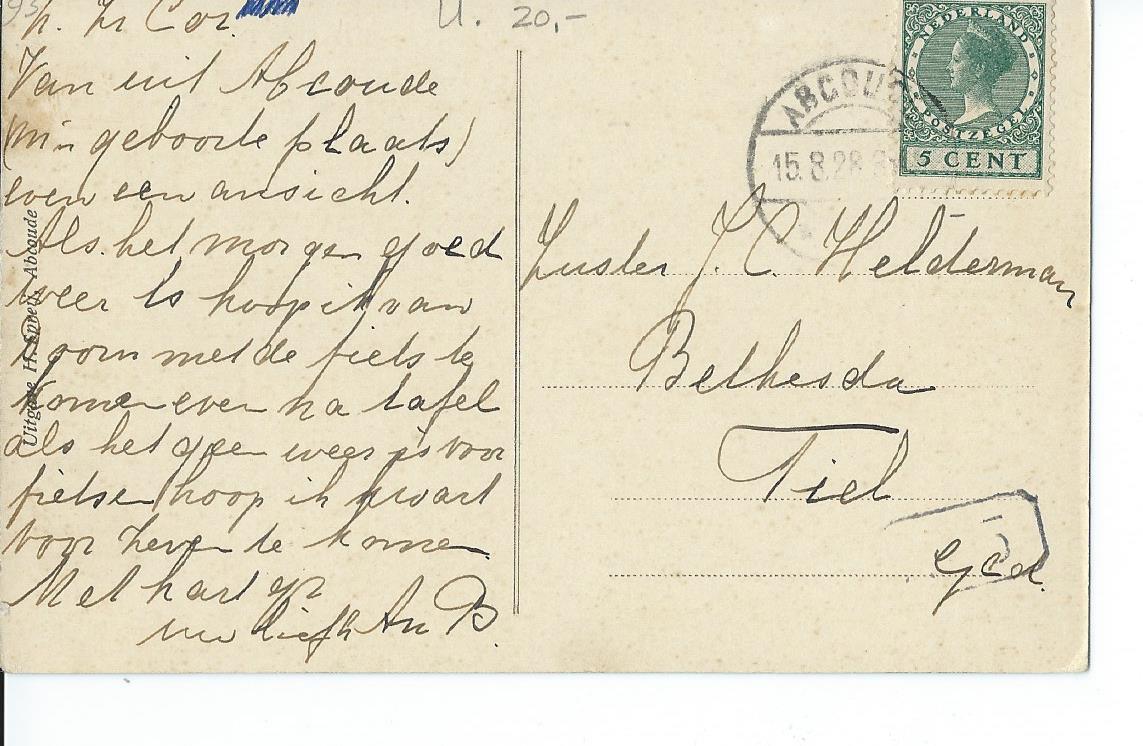 L. Zr Cor.
Van uit Abcoude
(mijn geboorte plaats)
even een ansicht.
Als het morgen goed
weer is hoop ik van
met de fiets te
komen even na tafel
als het geen weer is voor
fietsen hoop ik kwart
voor zeven te komen
Met hart gr
uw liefh An B.
Uitgave H. Spreij, Abcoude
U. 20,-
ABCOUDE
15.8.28
NEDERLAND
POSTZEGEL
5 CENT
Zuster J. C. Helderman
Bethesda
Tiel